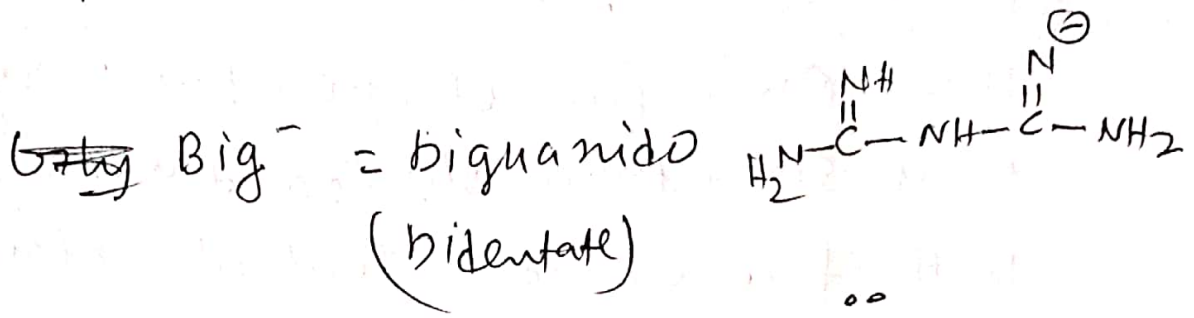 Big⁻ = biguanido H₂N-C(=NH)-NH-C(=N⊖)-NH₂
(bidentate)